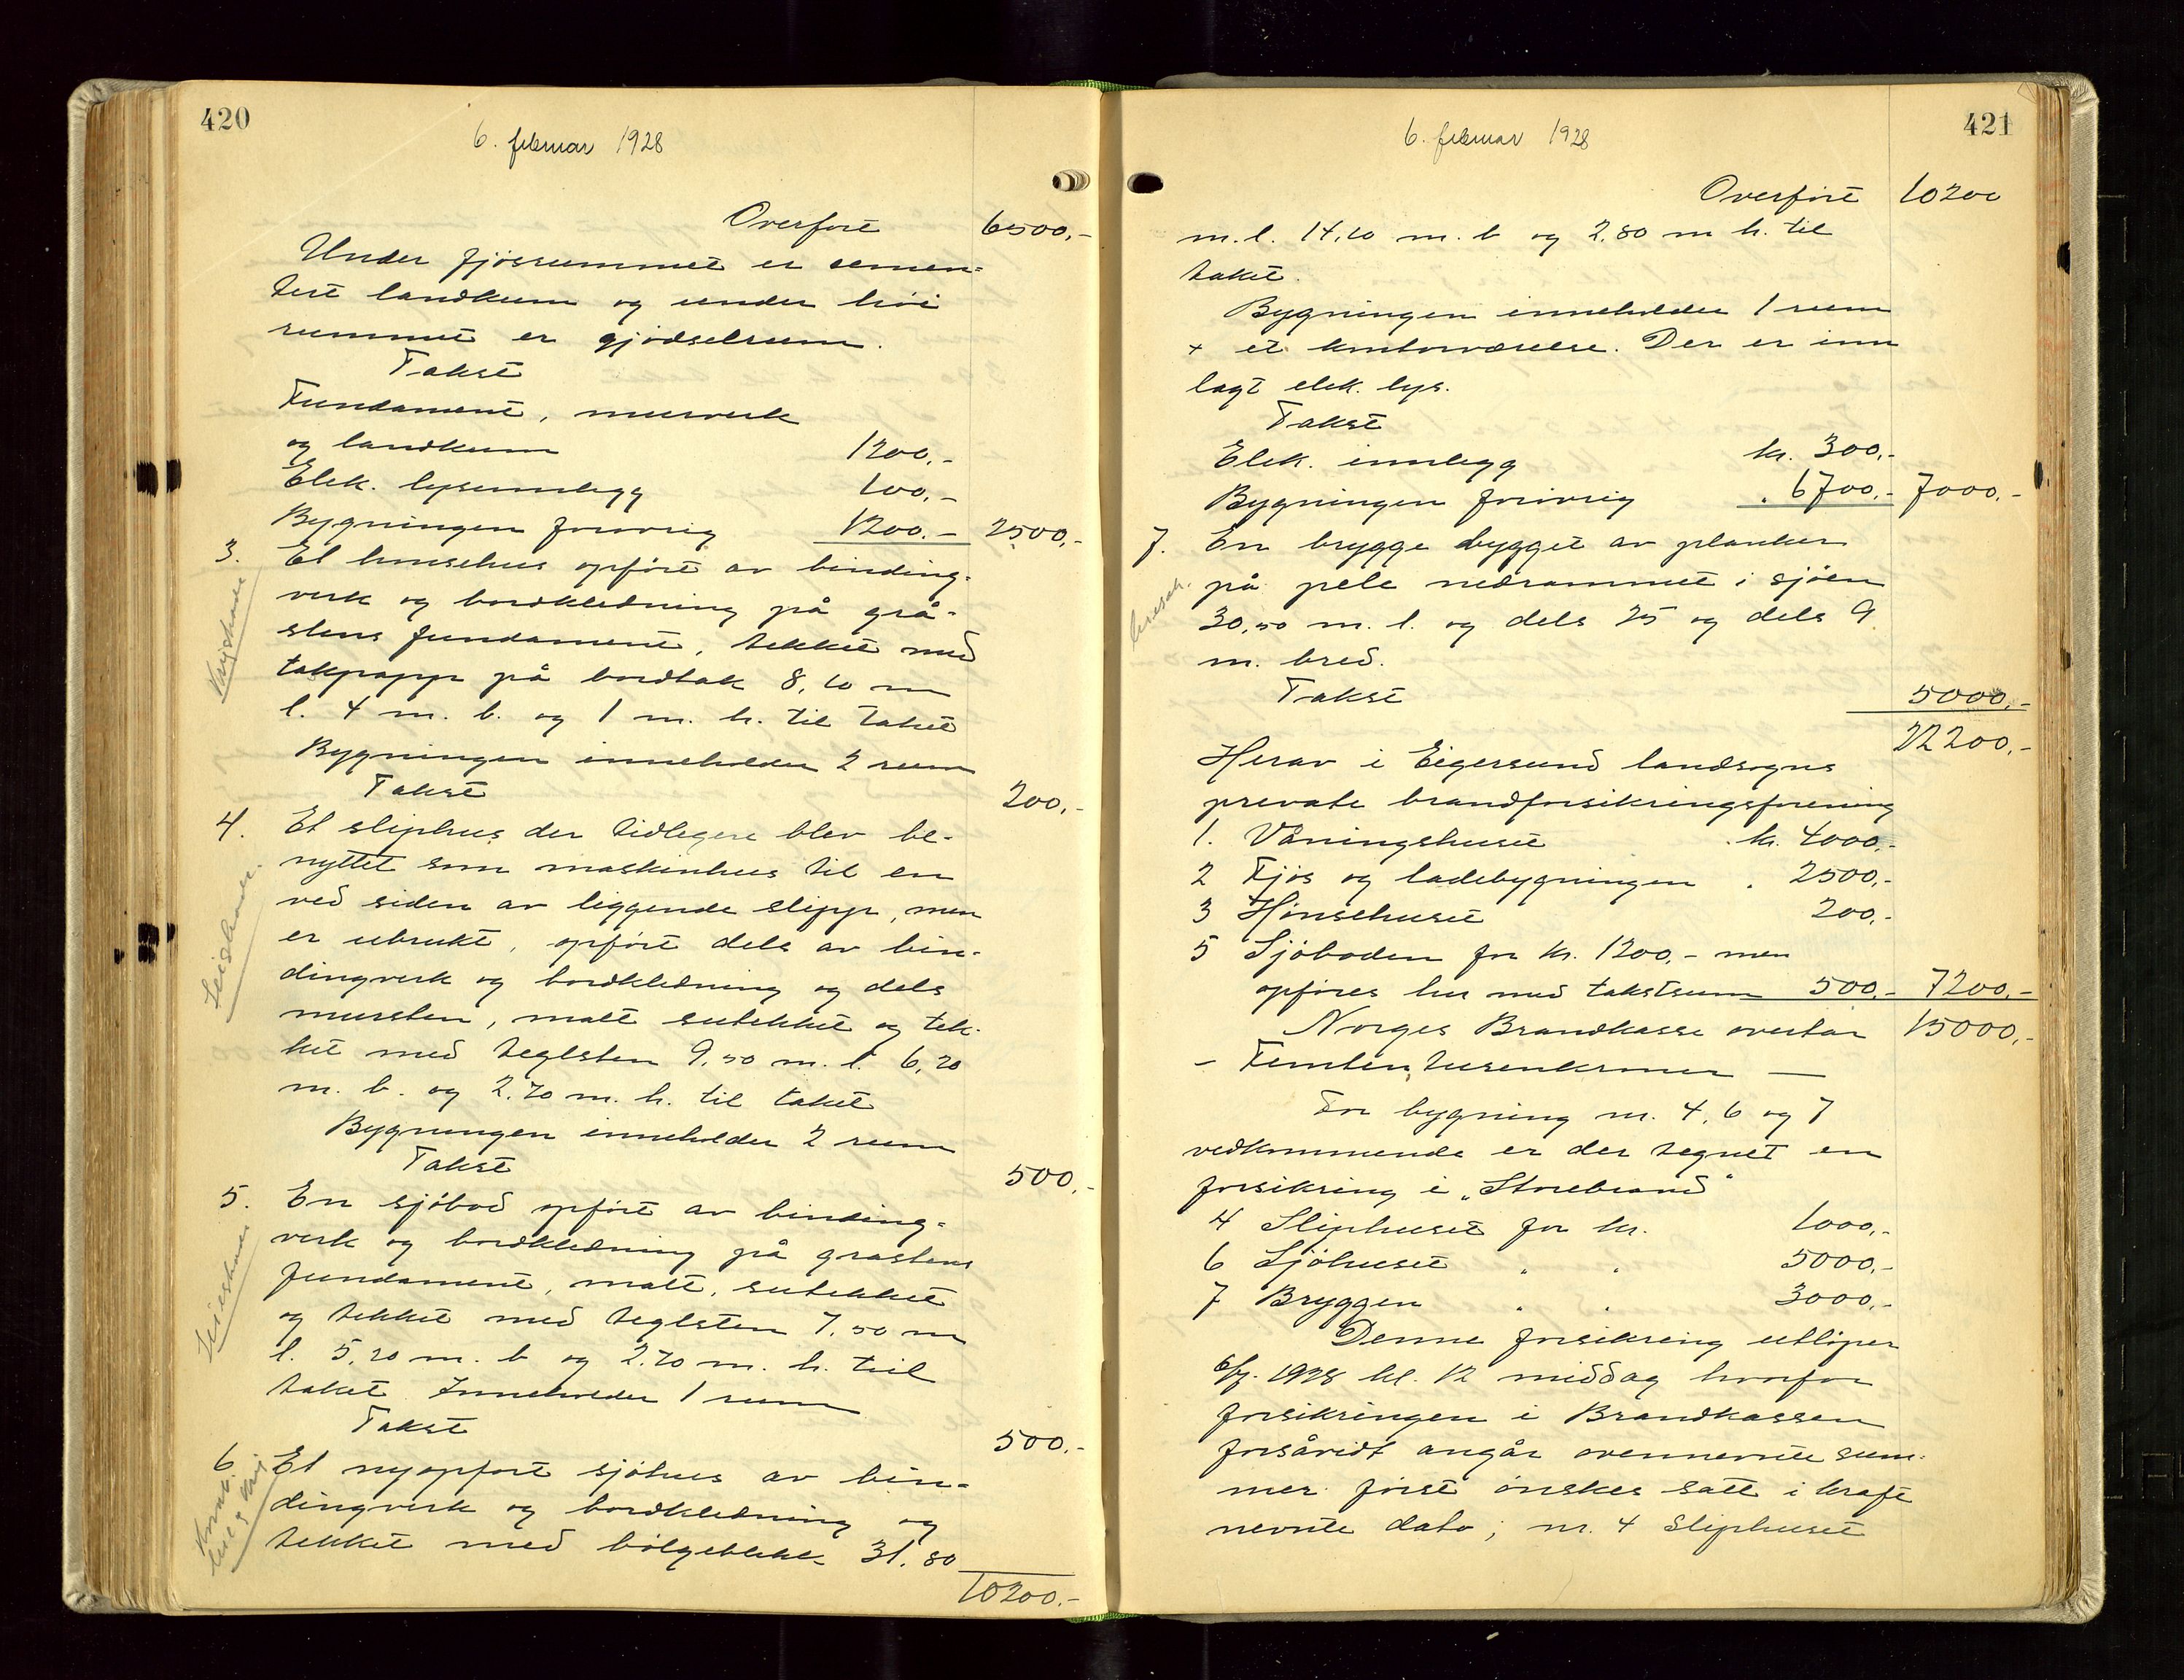 420
6. februar 1928
Overført 6500,-
Under fjøsrummet er semen-
tert landkum og under høi
rummet er gjødselrum.
Takst
Fundament, murverk
og landkum 1200,-
Elek. lysinnlegg 100,-
Bygningen forøvrig 1200.- 2500,-
3. Et hønsehus opført av binding-
verk og bordkledning på grå-
stens fundament, tekket med
takpapp på bordtak 8,10 m
l. 4 m. b. og 1 m. h. til taket
Bygningen inneholder 2 rum
Takst 200,-
4. Et sliphus der tidligere blev be-
nyttet som maskinhus til en
ved siden av liggende slipp, men
er ubrukt, opført dels av bin-
dingverk og bordkledning og dels
mursten, malt sutekket og tek-
ket med teglsten 9,50 m. l. 6,20
m. b. og 2,70 m. h. til taket
Bygningen inneholder 2 rum
Takst 500,-
5. En sjøbod opført av binding-
verk og bordkledning på grastens
fundament, malt, sutekket
og tekket med teglsten 7,50 m
l. 5,20 m. b og 2.70 m. h. til
taket Inneholder 1 rum
Takst 500.-
6 Et nyopført sjøhus av bin-
dingverk og bordkledning og
tekket med bølgeblikk 31,80
10200.-
421
6. februar 1928
Overført 10200
m.l. 14,10 m. b og 2,80 m h. til
taket.
Bygningen inneholder 1 rum
+ et kontorværelse. Der er inn
lagt elek. lys.
Takst
Elek. innlegg kr. 300,-
Bygningen forøvrig . 6700.- 7000,-
7. En brygge bygget av planker
på pele nedrammet i sjøen
30,50 m. l. og dels 25 og dels 9
m. bred.
Takst 5000,-
22200,-
Herav i Eigersund landsogns
private brandforsikringsforening
1. Våningshuset . kr. 4000,-
2 Fjøs og ladebygningen . 2500,-
3 Hønsehuset 200,-
5 Sjøboden for kr. 1200,- men
opføres her med takstsum 500,- 7200,-
Norges Brandkasse overtar 15000,-
- Femten tusenkroner —
For bygning nr. 4, 6 og 7
vedkommende er der tegnet en
forsikring i „Storebrand"
4 Sliphuset for kr. 1000,-
6 Sjøhuset " " 5000,-
7 Bryggen " " 3000,-
Denne forsikring utløper
6/7. 1928 kl. 12 middag hvorfor
forsikringen i Brandkassen
forsåvidt angår ovennevnte sum-
mer først ønskes satt i kraft
nevnte dato; nr. 4 Sliphuset